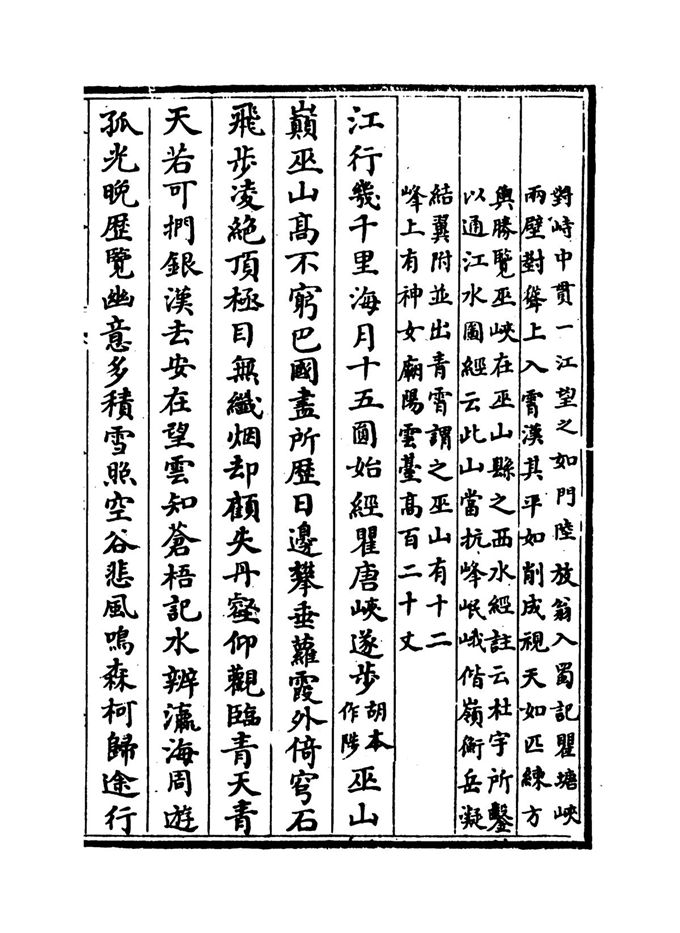 對峙中貫一江望之如門陸放翁入蜀記瞿塘峽
兩壁對聳上入霄漢其平如削成視天如匹練方
輿勝覽巫峽在巫山縣之西水經註云杜宇所鑿
以通江水圖經云此山當抗峰岷峨偕嶺衡岳凝
結翼附並出青霄謂之巫山有十二
峰上有神女廟陽雲臺高百二十丈
江行幾千里海月十五圓始經瞿唐峽遂步胡本作陟巫山
巔巫山高不窮巴國盡所歷日邊攀垂蘿霞外倚穹石
飛步凌絕頂極目無纖烟却顧失丹壑仰觀臨青天青
天若可捫銀漢去安在望雲知蒼梧記水辨瀛海周遊
孤光晚歷覽幽意多積雪照空谷悲風鳴森柯歸途行